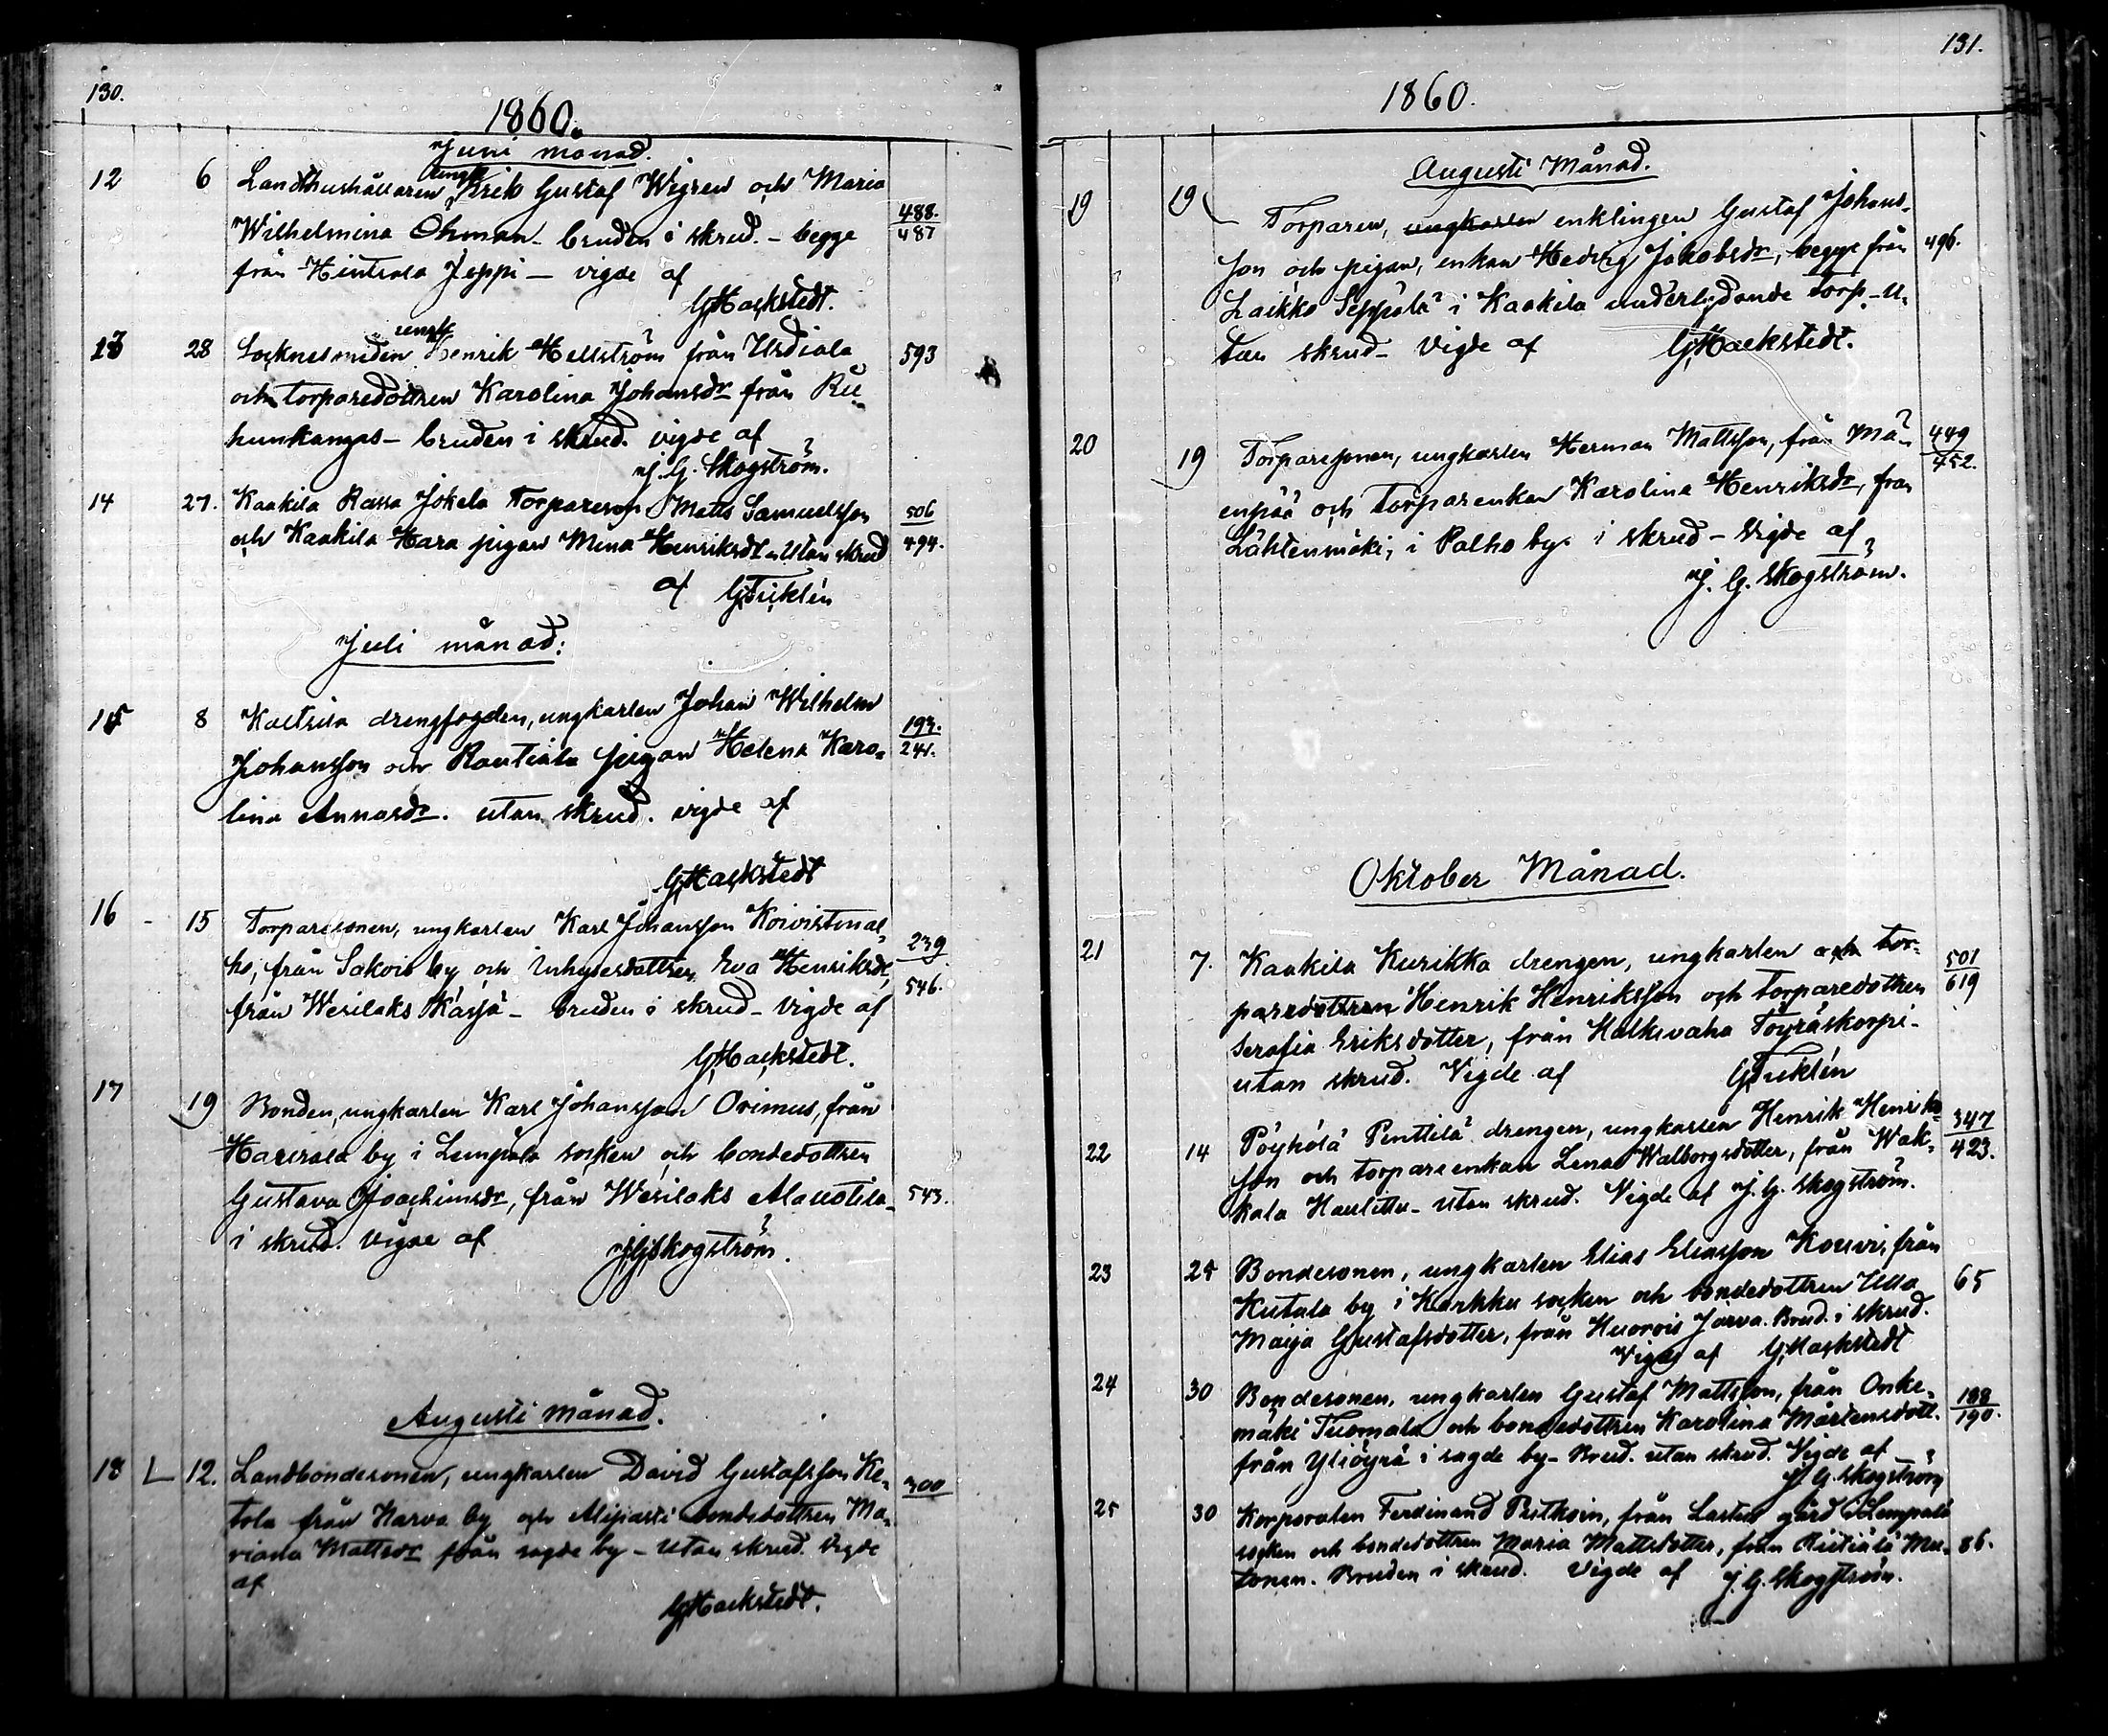 130.
1860.
Juni månad.
12 6 Landthushållaren ungk Erik Gustaf Wigren och Maria
Wilhelmina Öhman - bruden i skrud. - begge 488. 487
från Hintsala Jeppi - vigde af
G Hackstedt.
13 28 Socknesmeden ungk Henrik Hellström från Urdiala 593
och torparedottren Karolina Johansdr från Rii-
hunkangas - bruden i skrud. vigde af
J. G. Skogström.
14 27. Kaakila Rassa Jokela Torpareson Matts Samuelsson 506
och Kaakila Hara pigan Mina Henriksdt - Utan skrud 494.
af G Ticklén
Juli månad:
15 8 drengfogden, ungkarlen Johan Wilhelm 193.
Johansson och Rautiala pigan Helena Karo- 241.
lina Annasdr. utan skrud. vigde af
G Hackstedt
16 - 15 Torparesonen, ungkarlen Karl Johansson Koivistonal-
ho, från Sakois by och Inhysesdottren Eva Henriksdr, 239
från Wesilaks Kasjä - bruden i skrud - vigde af 546.
G Hackstedt.
17 19 Bonden, ungkarlen Karl Johansson Orimus, från
by i Lempälä socken och bondedottren
Gustava Joachimsdr, från Wesilaks Alauotila - 543.
i skrud. vigde af J G Skogström.
Augusti månad.
18 L 12. Landbondesonen, ungkarlen David Gustafsson Ke- 300
tola från Narva by och Alipirtti bondedottren Ma-
riana Mattsdr från sagde by - Utan skrud. Vigde
af
G Hackstedt.
131.
1860.
Augusti Månad.
19 19 Torparen, ungkarlen enklingen Gustaf Johans-
son och pigan, enkan Hedvig Jakobsdr, begge från 496.
Laikko Seppälä i Kaakila underlydande torp - u-
tan skrud - Vigde af G Hackstedt.
20 19 Torparesonen, ungkarlen Herman Mattsson, från Mä- 449
enpää och torparenkan Karolina Henriksdr, från 452.
Lähtenmäki, i Palho by - i skrud - Vigde af
J. G. Skogström.
Oktober Månad.
21 7. Kaakila Kurikka drengen, ungkarlen och tor- 501
paredottren Henrik Henriksson och torparedottren 619
Serafia Eriksdotter, från Halkivaha Töyräskorpi -
utan skrud. Vigde af G Ticklén
22 14 Pöyhölä Penttilä drengen, ungkarlen Henrik Henriks- 347
son och torpareenkan Lena Walborgsdotter, från Wak- 423.
kala Haulittu - utan skrud. Vigde af J. G. Skogström.
23 25 Bondesonen, ungkarlen Elias Eliasson Kouvi, från
Kutala by i Karkku socken och bondedottren Ulla 65
Maija Gustafsdotter, från Huovois Järva. Brud. i skrud.
Vigde af G Hackstedt
24 30 Bondesonen, ungkarlen Gustaf Mattsson, från Onke- 188
mäki Tuomala och bondedottren Karolina Mårtensdott. 190.
från Yliöyrä i sagde by - Brud. utan skrud. Vigde af
J. G. Skogström
25 30 Korporalen Ferdinand från Lastus gård i Lempälä
socken och bondedottren Maria Mattsdotter, från Rietiälä Mu- 86.
tonen. Bruden i skrud. Vigde af J. G. Skogström.